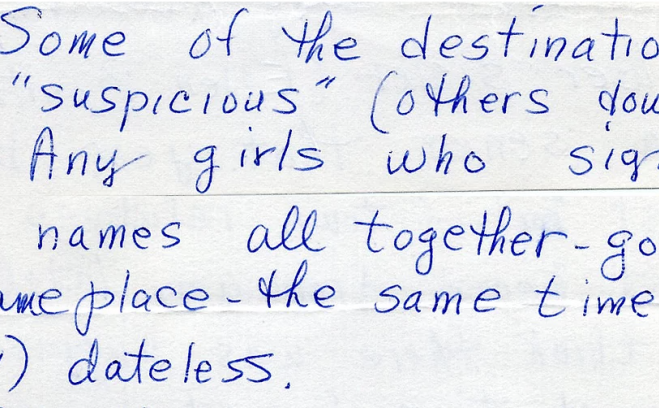 Some of the destinatio
"suspicious" (others dou
Any girls who sign
names all together - go
ame place - the same time
) dateless.